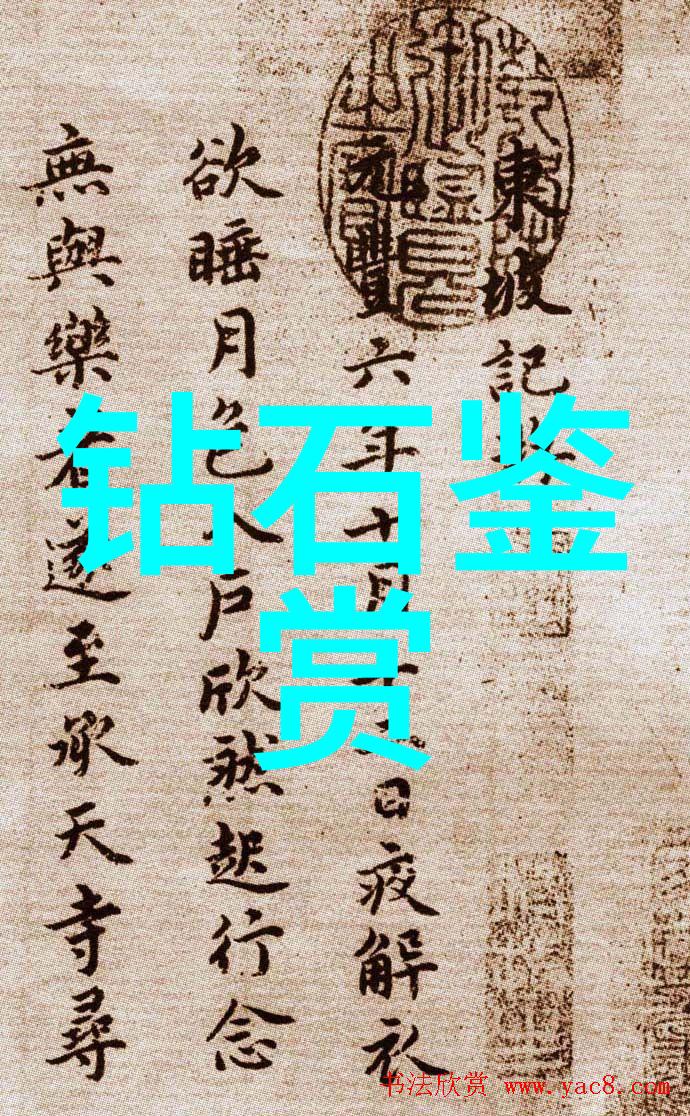 東坡記
元豐六年十月十二日夜解衣
欲睡月色入户欣然起行念
無與樂者遂至承天寺尋
钻石鉴
赏
书法欣赏 www.yac8.com